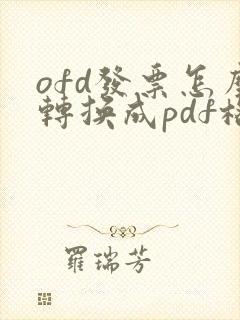 ofd發票怎麼
轉換成pdf格
羅瑞芳